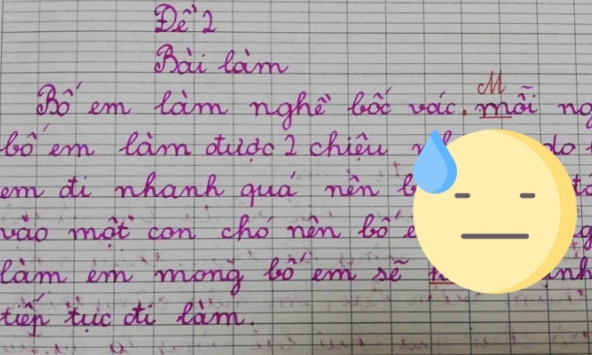 Đề 2
Bài làm
M
Bố em làm nghề bốc vác. mỗi
bố em làm được 2 chiệu do
em đi nhanh quá nên
vào một con chó nên bố
làm em mong bố em sẽ
tiếp tục đi làm.